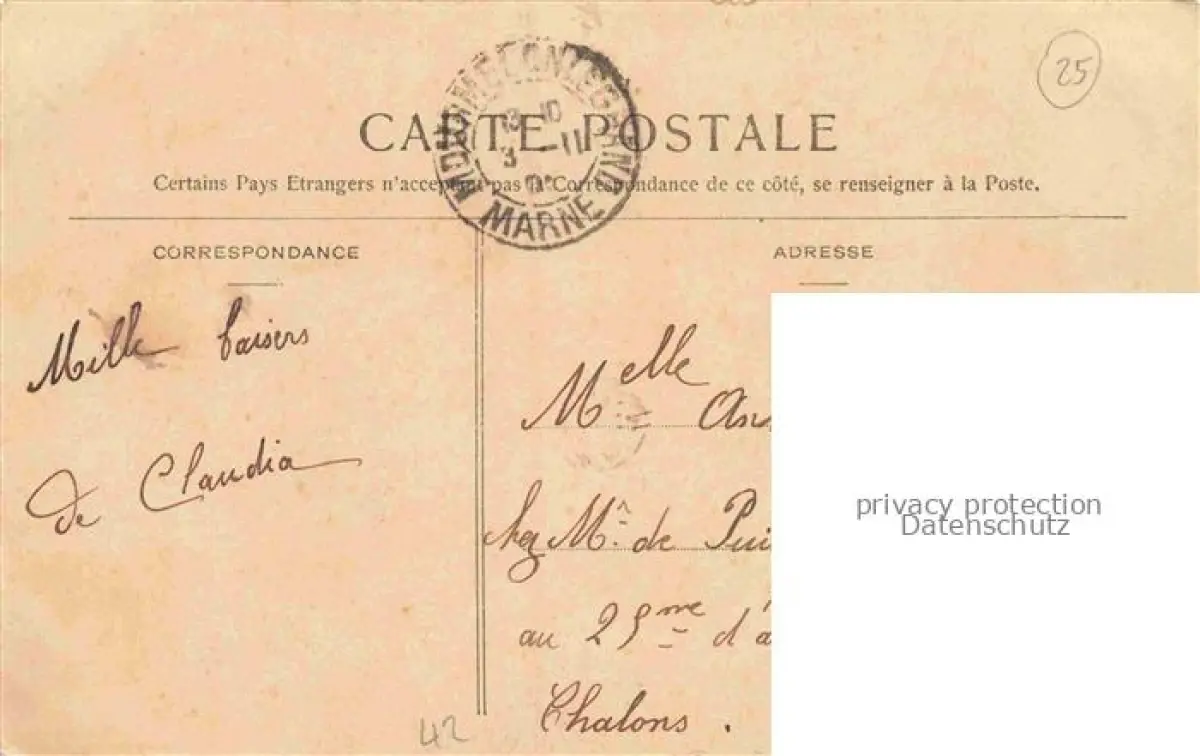 25
CARTE POSTALE
Certains Pays Etrangers n'acceptant pas la Correspondance de ce côté, se renseigner à la Poste.
MOURMELON-LE-GRAND
13-10
3 - 11
MARNE
CORRESPONDANCE
Mille baisers
de Claudia
42
ADRESSE
Melle
chez Mr de
au 25me
Chalons.
privacy protection
Datenschutz